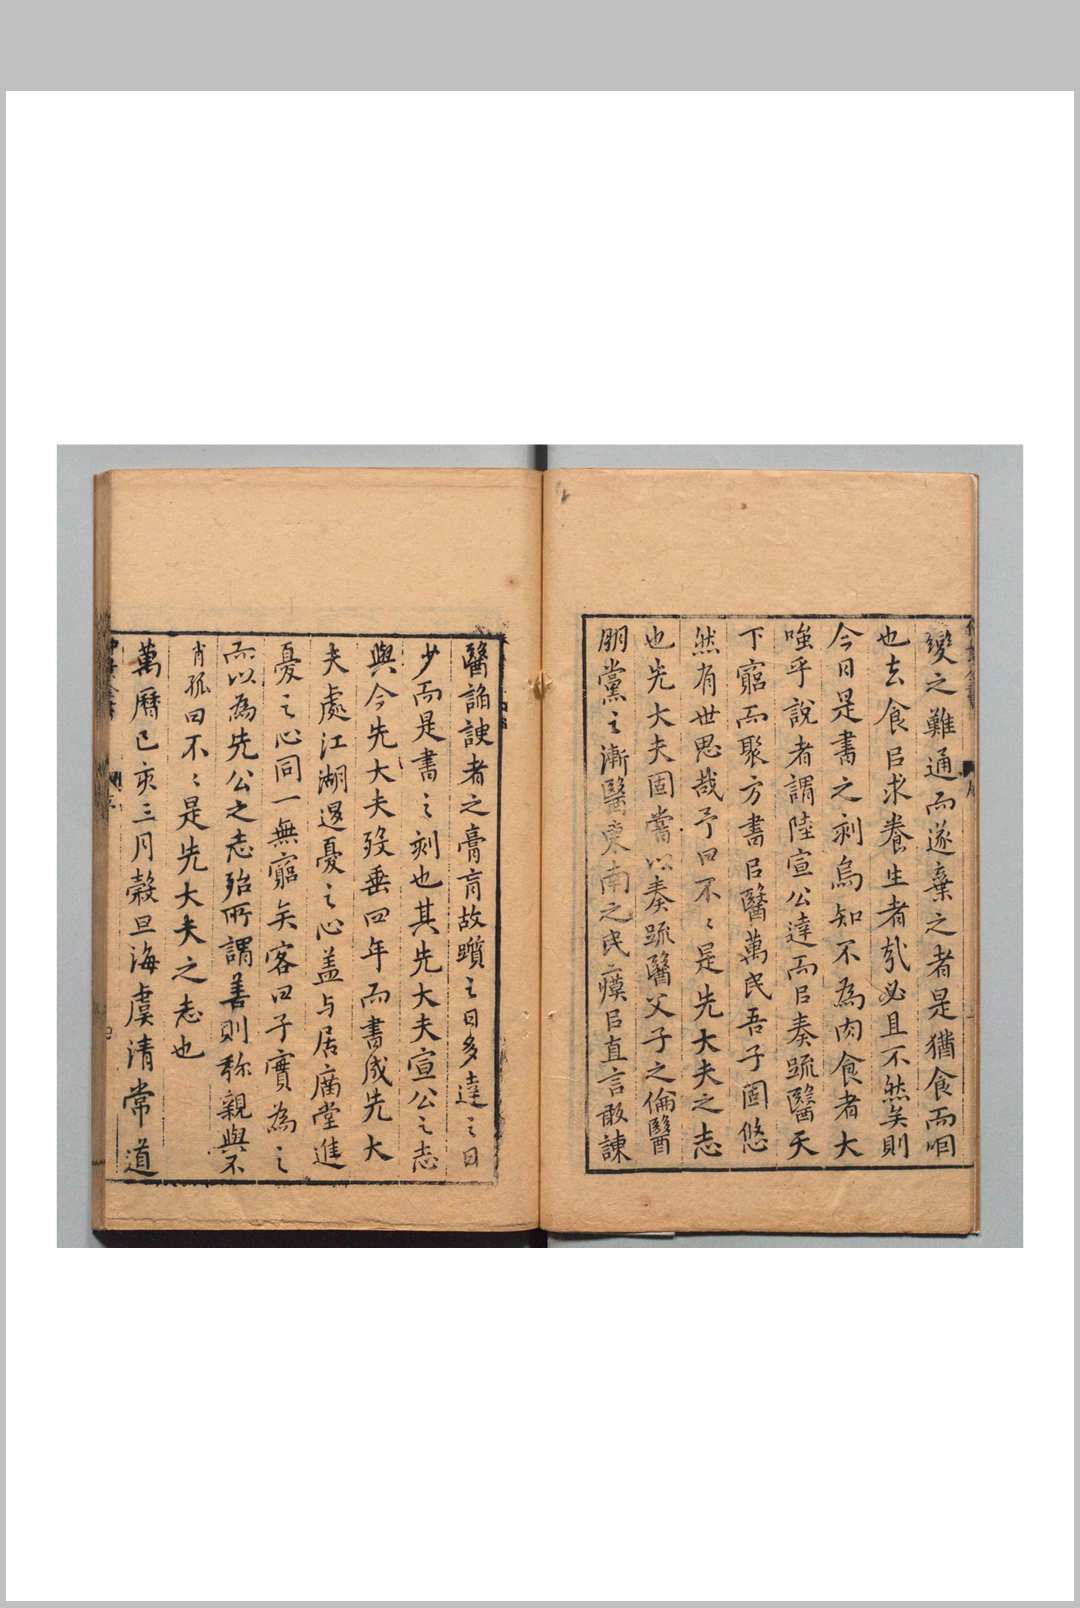 變之難通而遂棄之者是猶食而咽
也去食㠯求養生者㢤必且不然矣則
今日是書之刻烏知不為肉食者大
嗤乎說者謂陸宣公達而㠯奏䟽醫天
下窮而聚方書㠯醫萬民吾子固悠
然有世思哉予曰不〻是先大夫之志
也先大夫固嘗以奏䟽醫父子之倫醫
朋黨之漸醫東南之民瘼㠯直言敢諫
醫諂諛者之膏肓故躓之日多達之日
少而是書之刻也其先大夫宣公之志
與今先大夫歿垂四年而書成先大
夫處江湖退憂之心盖与居廟堂進
憂之心同一無窮矣客曰子實為之
而以為先公之志殆所謂善則称親與不
肖孤曰不〻是先大夫之志也
萬曆己亥三月穀旦海虞清常道